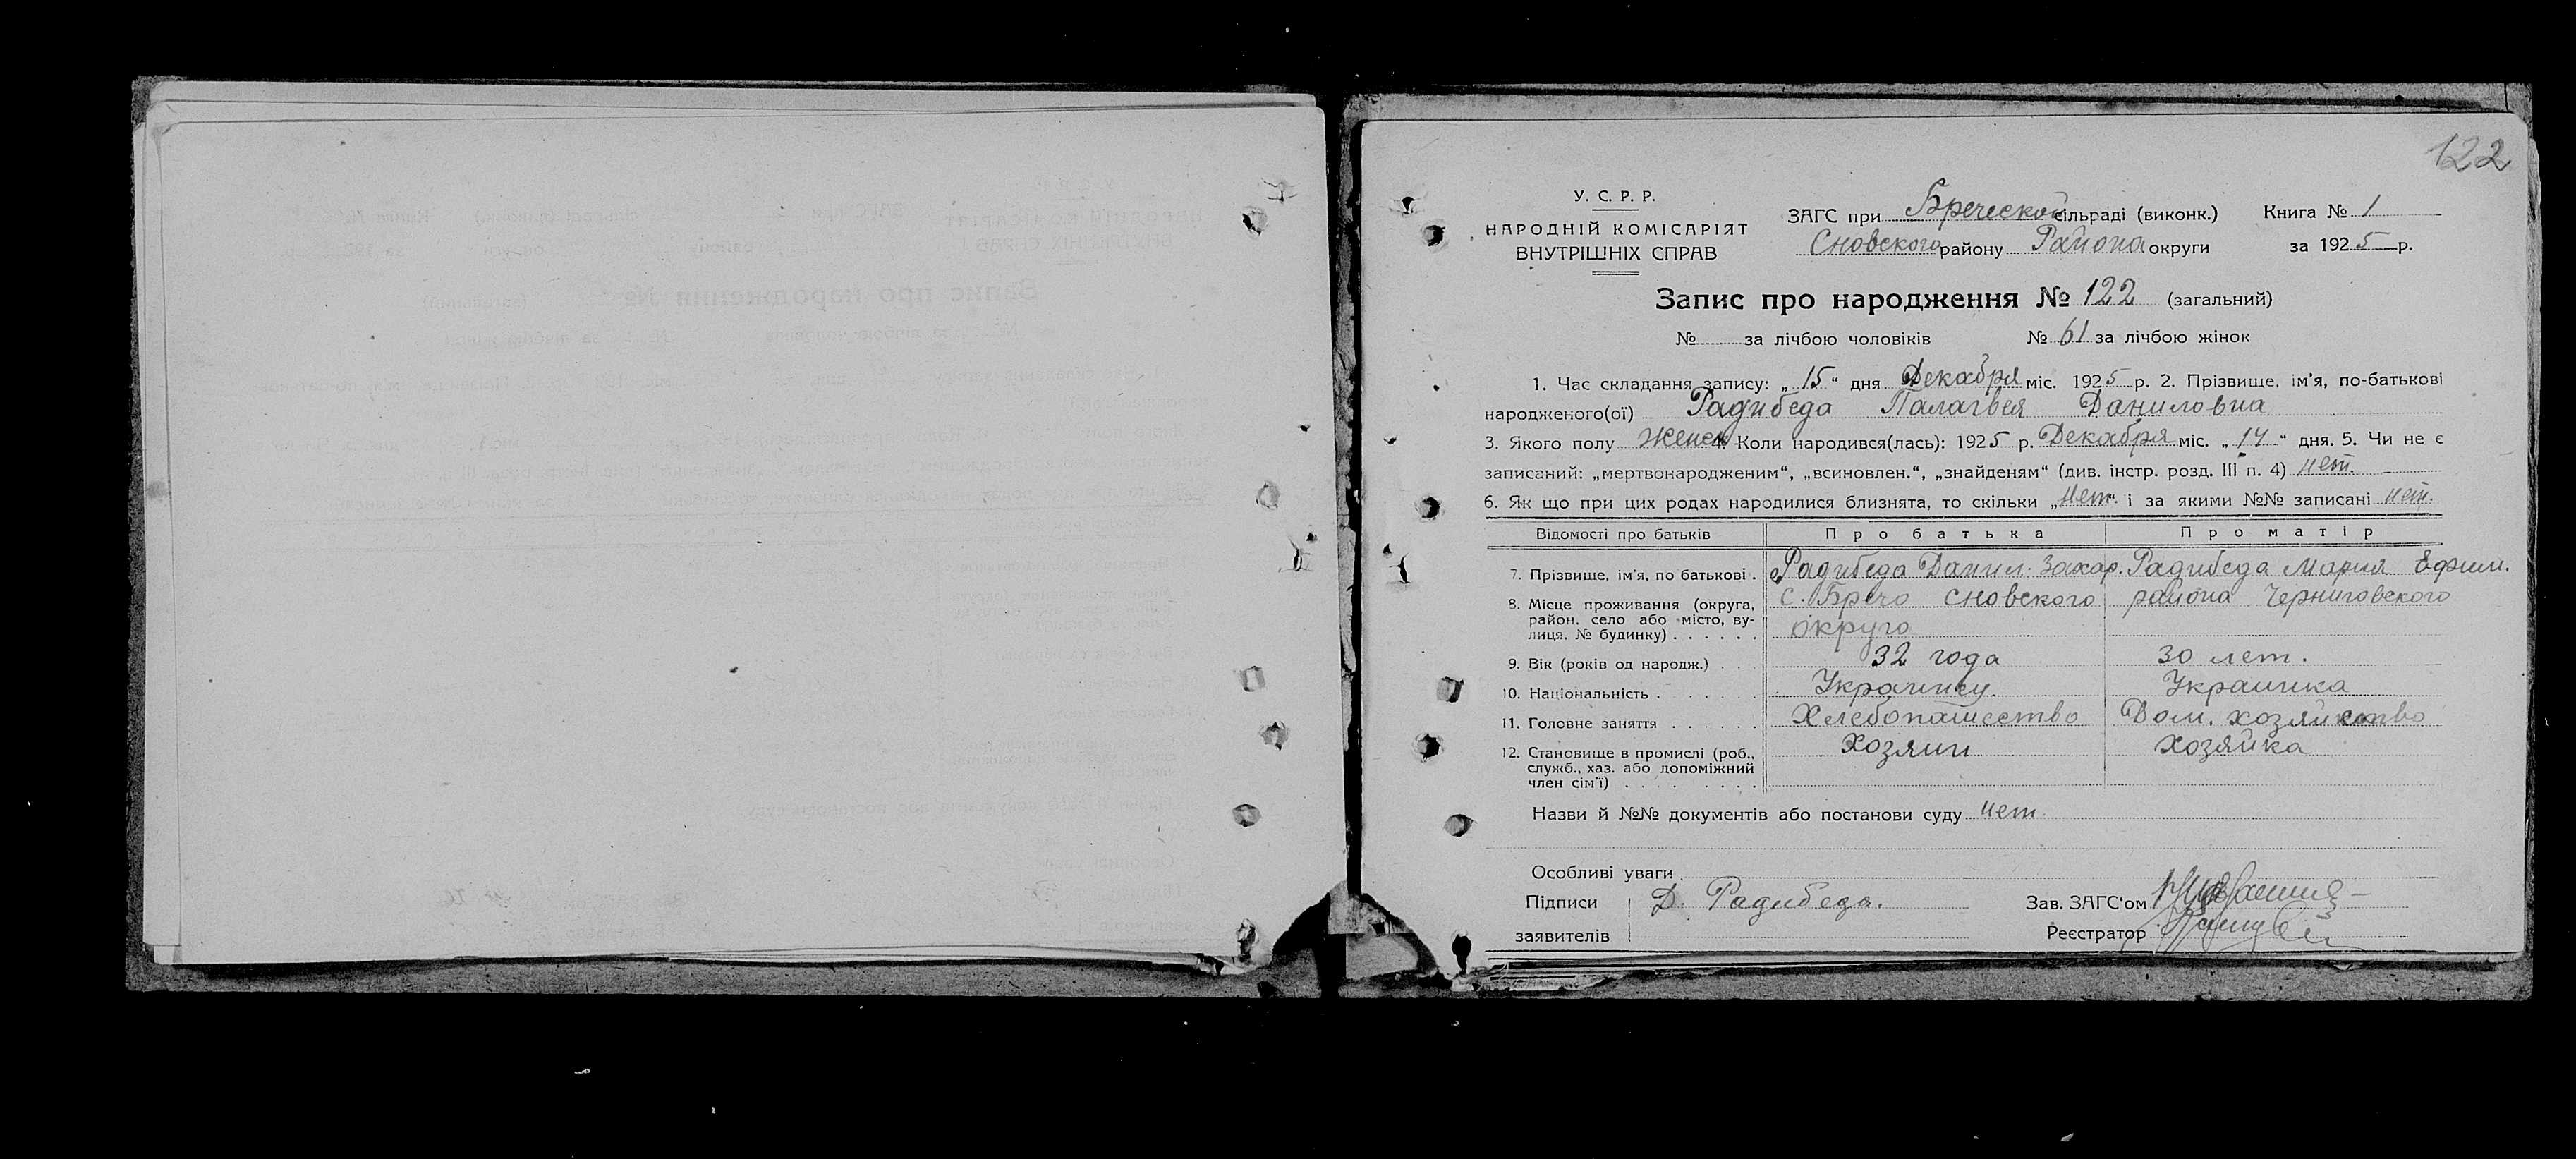 122
У. С. Р. Р.
НАРОДНІЙ КОМІСАРІЯТ
ВНУТРІШНІХ СПРАВ
ЗАГС при Бреческой сільраді (виконк.) Книга № 1
Сновского району Района округи за 1925 р.
Запис про народження № 122 (загальний)
№ за лічбою чоловіків № 61 за лічбою жінок
1. Час складання запису: „15“ дня Декабря міс. 1925 р. 2. Прізвище, ім'я, по-батькові
народженого(ої) Радибеда Палагвея Даниловна
3. Якого полу Женск 4. Коли народився(лась): 1925 р. Декабря міс. „14“ дня. 5. Чи не є
записаний: „мертвонародженим“, „всиновлен.“, „знайденям“ (див. інстр. розд. III п. 4) нет.
6. Як що при цих родах народилися близнята, то скільки „нет“ і за якими №№ записані нет.
Відомості про батьків Про батька Про матір
7. Прізвище, ім'я, по батькові . Радибеда Данил. Захар. Радибеда Мария Ефим.
8. Місце проживання (округа, район, село або місто, вулиця, № будинку) с. Бречо Сновского района Черниговского
округо
9. Вік (років од народж.) 32 года 30 лет.
10. Національність Украинец. Украинка
11. Головне заняття Хлебопашество Дом. хозяйство
12. Становище в промислі (роб., служб., хаз. або допоміжний член сім'ї) Хозяин Хозяйка
Назви й №№ документів або постанови суду нет
Особливі уваги
Підписи Д. Радибеда. Зав. ЗАГС'ом
заявителів Реєстратор